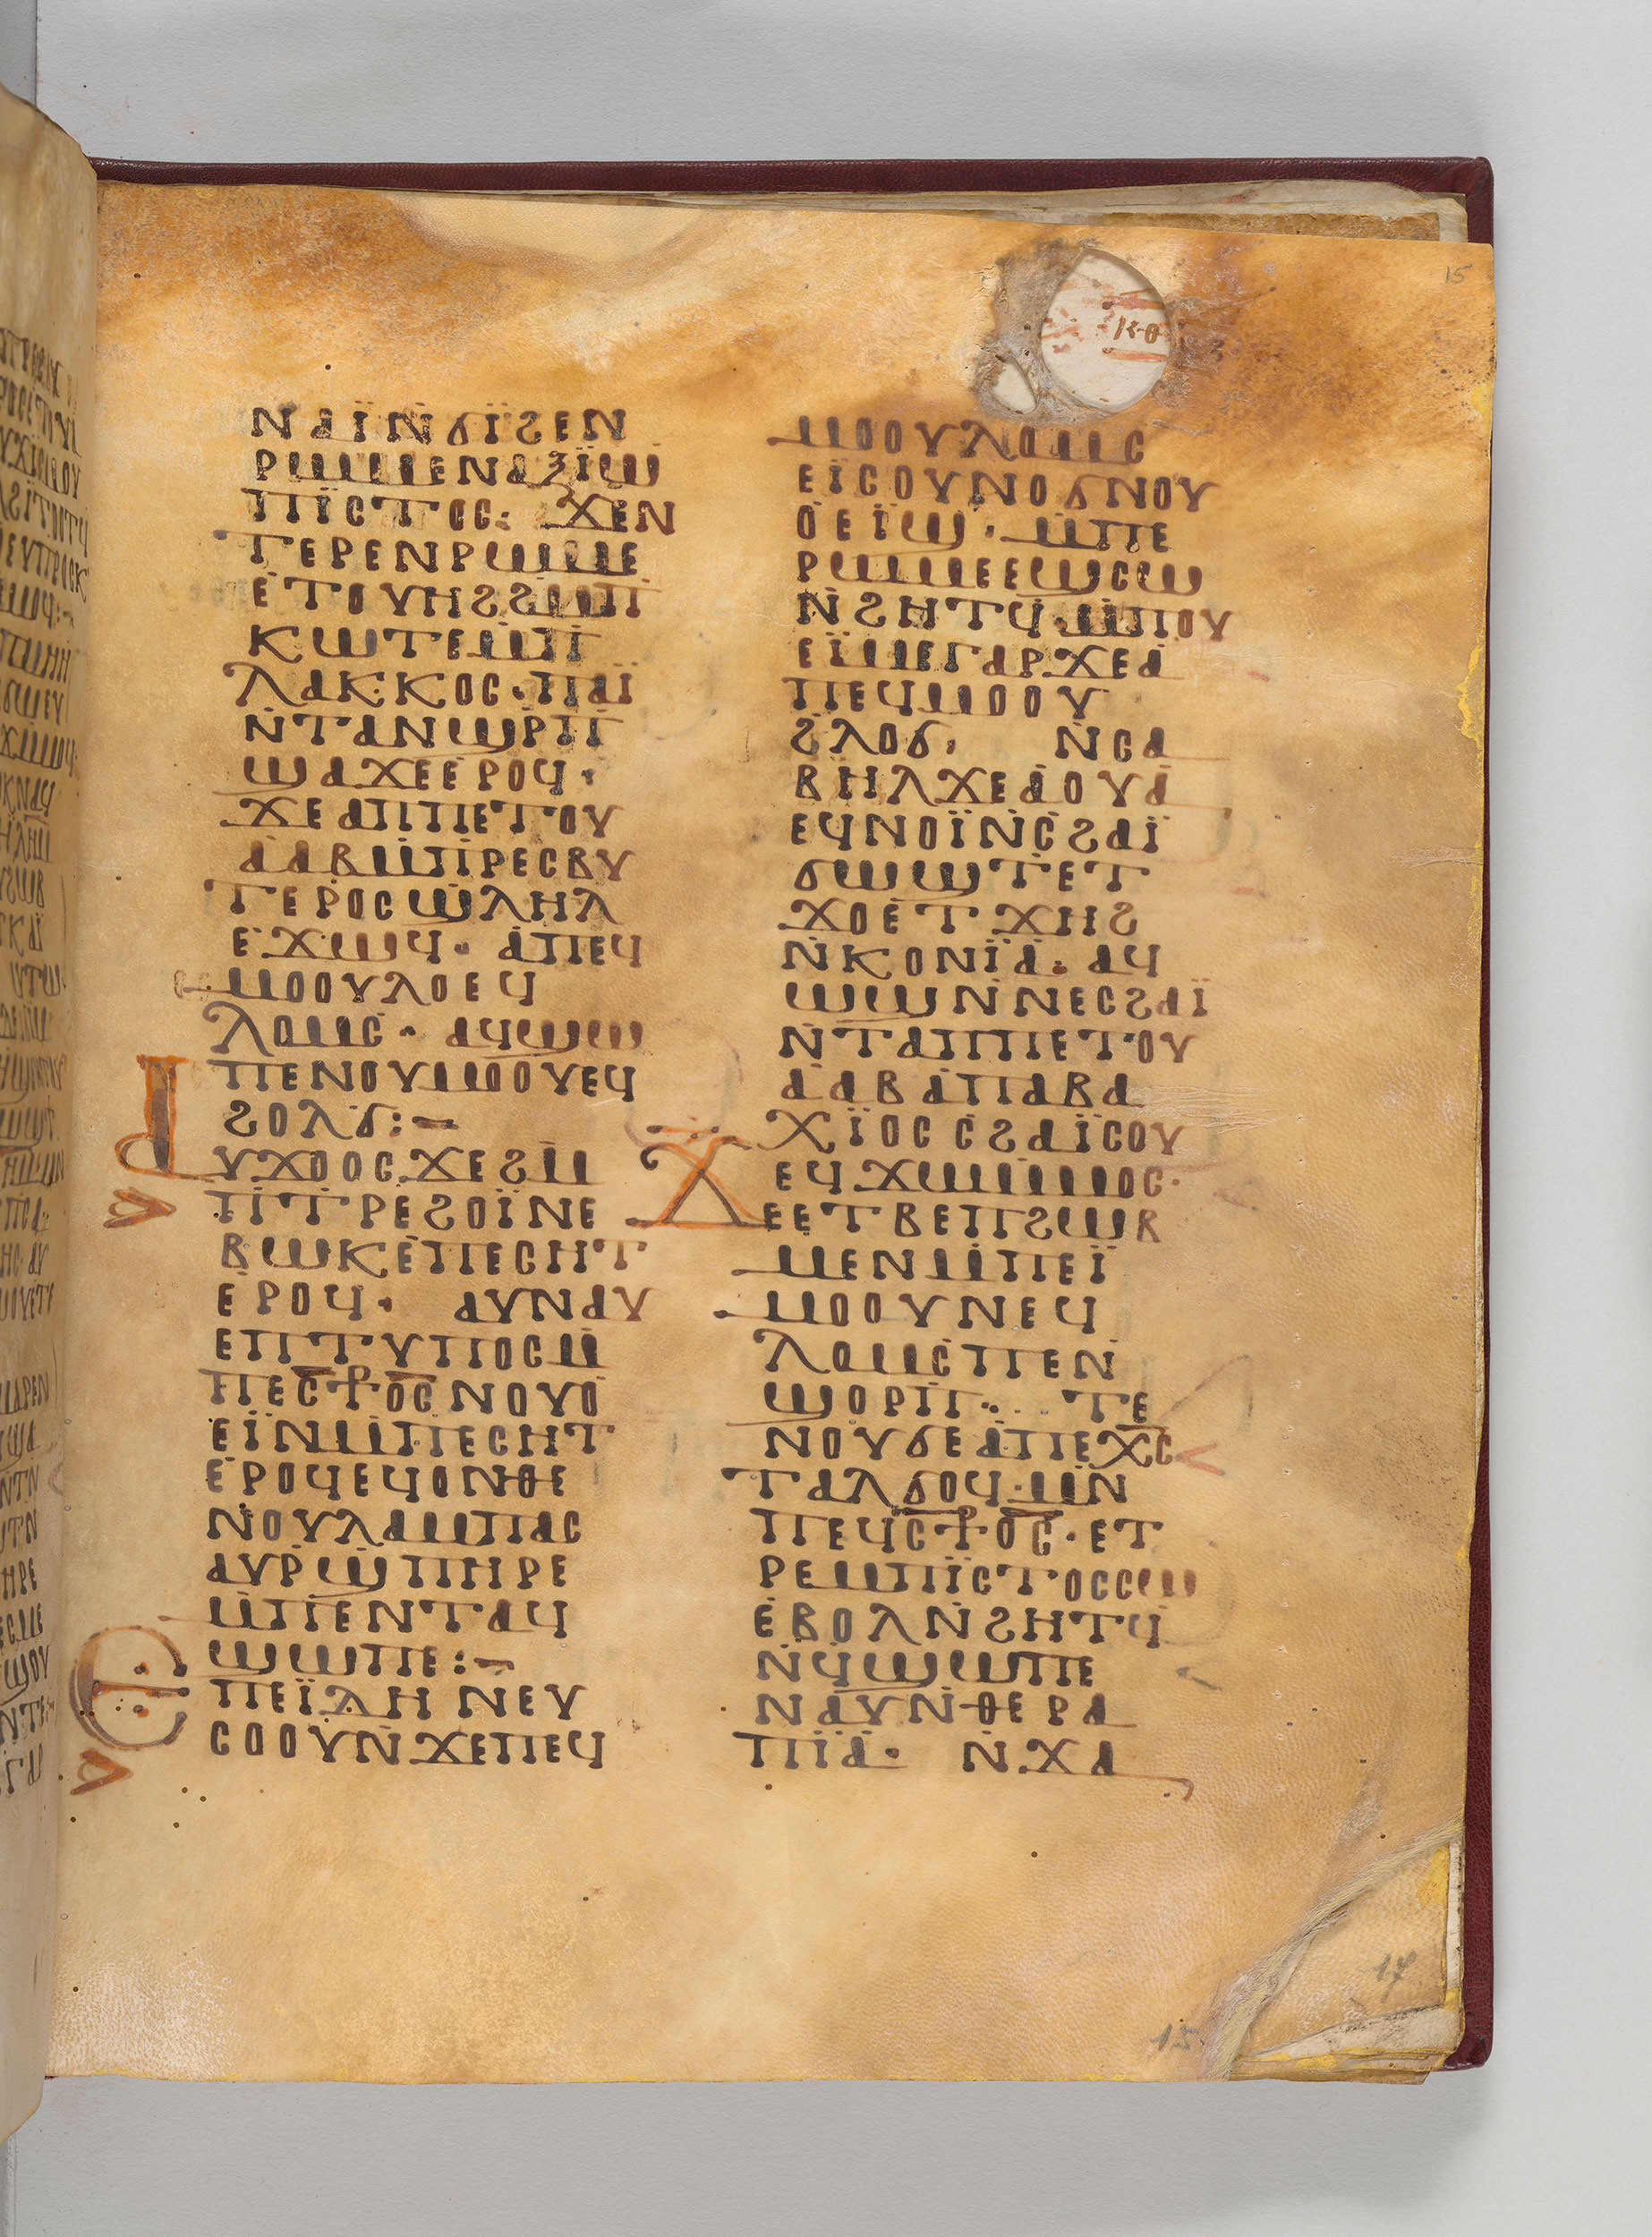 ⲚⲀⲒ̈Ⲛ̇ϬⲒ̈ϨⲈⲚ
ⲢⲰⲘⲈⲚⲀⲜⲒ̈Ⲱ
ⲠⲒ̈ⲤⲦⲞⲤ: ϪⲈⲚ
ⲦⲈⲢⲈⲚⲢⲰⲘⲈ
ⲈⲦⲞⲨⲎϨϨⲘ̇Ⲡ
ⲔⲰⲦⲈⲘ̇Ⲡ
ⲖⲀⲔⲔⲞⲤ·ⲠⲀⲒ̈
Ⲛ̇ⲦⲀⲚϢⲢ̇Ⲡ
ϢⲀϪⲈⲈ̇ⲢⲞϤ·
ϪⲈⲀⲠⲠⲈⲦⲞⲨ
Ⲁ̇ⲀⲂⲘ̇ⲠⲢⲈⲤⲂⲨ
ⲦⲈⲢⲞⲤϢⲖⲎⲖ
Ⲉ̇ϪⲰϤ· ⲀⲠⲈϤ
ⲘⲞⲞⲨⲖⲞⲈϤ
ⲖⲞⲘⲤ· ⲀϤϢⲰ
ⲠⲈⲚⲞⲨⲘⲞⲞⲨⲈϤ
ϨⲞⲖϬ:—
ⲀⲨϪⲞⲞⲤϪⲈϨⲘ
ⲠⲦⲢⲈϨⲞⲒ̈ⲚⲈ
ⲂⲰⲔⲈ̇ⲠⲈⲤⲎⲦ
Ⲉ̇ⲢⲞϤ· ⲀⲨⲚⲀⲨ
ⲈⲠⲦⲨⲠⲞⲤⲘ
ⲠⲈⲤ⳨ⲞⲤⲚⲞⲨⲞ̇
ⲈⲒ̈ⲚⲘ̇ⲠⲈⲤⲎⲦ
Ⲉ̇ⲢⲞϤⲈϤⲞⲚⲐⲈ
ⲚⲞⲨⲖⲀⲘⲠⲀⲤ
ⲀⲨⲢ̇ϢⲠⲎⲢⲈ
Ⲙ̇ⲠⲈⲚⲦⲀϤ
ϢⲰⲠⲈ:—
ⲈⲠⲈⲒ̈ⲆⲎ ⲚⲈⲨ
ⲤⲞⲞⲨⲚ̇ϪⲈⲠⲈϤ
ⲔⲐ
ⲘⲞⲞⲨⲖⲞⲘⲤ
ⲈⲒ̈ⲤⲞⲨⲚⲞϬⲚⲞⲨ
Ⲟ̇ⲈⲒ̈Ϣ· Ⲙ̇ⲠⲈ
ⲢⲰⲘⲈⲈϢⲤⲰ
Ⲛ̇ϨⲎⲦϤ·Ⲙ̇ⲠⲞⲨ
ⲈⲒ̈ⲘⲈⲄⲀⲢϪⲈⲀ
ⲠⲈϤⲘⲞⲞⲨ
ϨⲖⲞϬ· ⲚⲤⲀ
ⲂⲎⲖϪⲈⲀ̇ⲞⲨⲀ̇
ⲈϤⲚⲞⲒ̈Ⲛ̇ⲤϨⲀⲒ̈
ϬⲰϢⲦⲈⲦ
ϪⲞⲈ̇ⲦϪⲎϨ
Ⲛ̇ⲔⲞⲚⲒ̈Ⲁ̇· ⲀϤ
ⲰϢⲚ̇ⲚⲈⲤϨⲀⲒ̈
Ⲛ̇ⲦⲀⲠⲠⲈⲦⲞⲨ
Ⲁ̇ⲀⲂ Ⲁ̇ⲠⲀⲂⲀ
ⲬⲒ̈ⲞⲤ ⲤϨⲀⲒ̈ⲤⲞⲨ
ⲈϤϪⲰⲘ̇ⲘⲞⲤ·
ϪⲈⲈⲦⲂⲈⲠϨⲰⲂ
ⲘⲈⲚⲘ̇ⲠⲈⲒ̈
ⲘⲞⲞⲨⲚⲈϤ
ⲖⲞⲘⲤ̇ⲠⲈⲚ̇
ϢⲞⲢⲠ· ⲦⲈ
ⲚⲞⲨϬⲈⲀ̇ⲠⲈⲬⲤ
ⲦⲀⲖϬⲞϤ·ⲘⲚ̇
ⲠⲈϤⲤ⳨ⲞⲤ·ⲈⲦ
ⲢⲈⲘⲠⲒ̈ⲤⲦⲞⲤⲤⲰ
Ⲉ̇ⲂⲞⲖⲚ̇ϨⲎⲦϤ̇
Ⲛ̇ϤϢⲰⲠⲈ
ⲚⲀⲨⲚ̇ⲐⲈⲢⲀ
ⲠⲒ̈Ⲁ̇· Ⲛ̇ϪⲀ
15
17
15